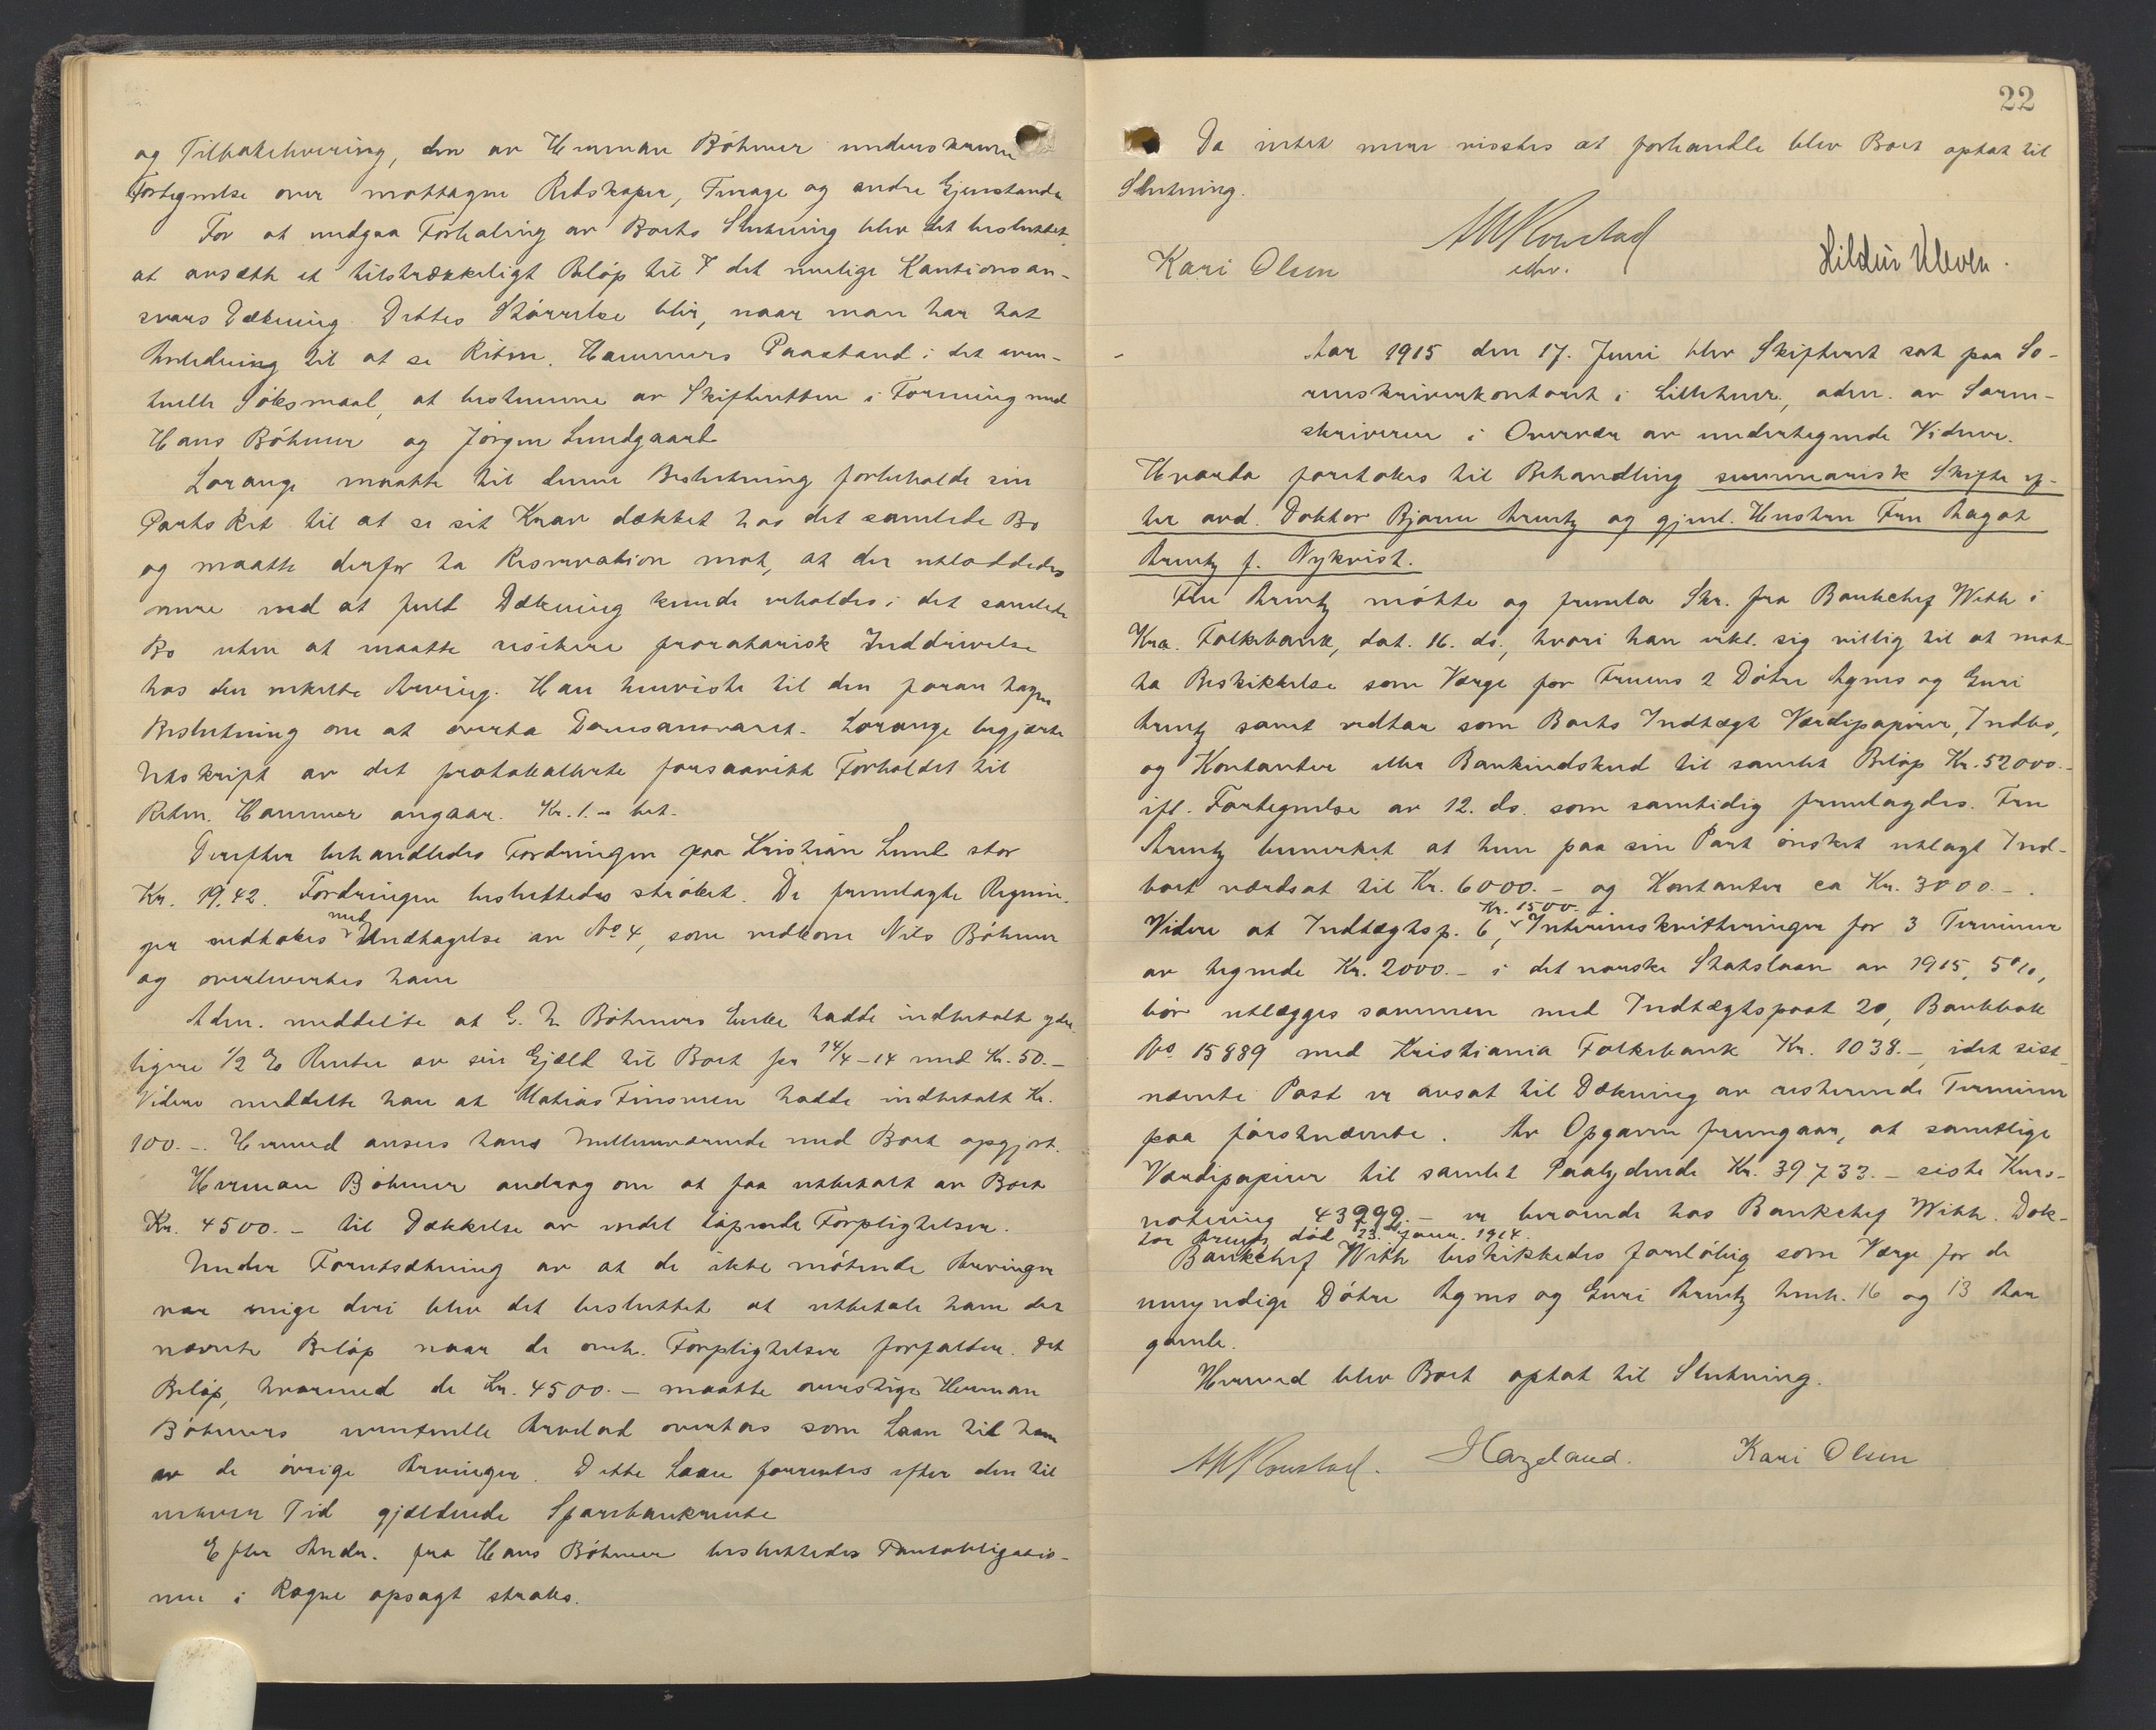 og Tilbakelevering, den av Herman Böhmer underskrevne
Fortegnelse over mottagne Redskaper, Furage og andre Gjenstande
For at undgaa Forhaling av Boets Slutning blev det besluttet
at avsætte et tilstrækkeligt Beløp til det mulige Kautionsan-
svars Dækning. Dettes Størrelse blir, naar man har hat
Anledning til at se Ritm. Hammers Paastand i det even-
tuelle Søksmaal, at bestemme av Skifteretten i Forening med
Hans Böhmer og Jørgen Lundgaard
Lorange maatte til denne Beslutning forbeholde sin
Parts Ret til at se sit Krav dækket hos det samlede Bo
og maatte derfor ta Reservation mot, at der utloddedes
mere end at fuld Dækning kunde erholdes i det samlede
Bo uten at maatte risikere proratarisk Inddrivelse
hos den enkelte Arving. Han henviste til den foran tagne
Beslutning om at overta Domsansvaret. Lorange begjærte
Utskrift av det protokollerte forsaavidt Forholdet til
Ritm. Hammer angaar. Kr. 1.- bet.
Derefter behandledes Fordringen paa Kristian Lund stor
Kr. 19.42. Fordringen besluttedes strøket. De fremlagte Regnin-
ger vedtokes med Undtagelse av No 4, som vedkom Nils Böhmer
og overlevertes ham
Adm. meddelte at G. N Böhmers Enke hadde indbetalt yder-
ligere 1/2 % Renter av sin Gjæld til Boet pr 14/4-14 med Kr. 50.-
Videre meddelte han at Matias Finsveen hadde indbetalt Kr.
100.-. Hermed ansees hans Mellemværende med Boet opgjort.
Herman Böhmer androg om at faa utbetalt av Boet
Kr. 4500.- til Dækkelse av endel løpende Forpligtelser.
Under Forutsætning av at de ikke møtende Arvinger
var enige deri blev det besluttet at utbetale ham det
nævnte Beløp naar de omh. Forpligtelser forfalder. Det
Beløp, hvormed de Kr. 4500.- maatte overstige Herman
Böhmers eventuelle Arvelod overtas som Laan til ham
av de øvrige Arvinger. Dette Laan forrentes efter den til
enhver Tid gjældende Sparebankrente
Efter Andr. fra Hans Böhmer besluttedes Pantobligatio-
nen i Rogne opsagt straks.
22
Da intet mere vissstes at forhandle blev Boet optat til
Slutning.
Kari Olsen
Hildur Kleven.
Aar 1915 den 17. Juni blev Skifteret sat paa So-
renskriverkontoret i Lillehmr., adm. av Soren-
skriveren i Overvær av undertegnede Vidner.
Hvorda foretokes til Behandling summarisk Skifte ef-
ter avd. Doktor Bjarne Arentz og gjenl. Hustru Fru Dagot
Arentz f. Nykvist.
Fru Arentz møtte og fremla Skr. fra Bankchef With i
Kra. Folkebank, dat. 16. ds., hvori han erkl. sig villig til at mot-
ta Beskikkelse som Værge for Fruens 2 Døtre Agnes og Guri
Arentz samt vedtar som Boets Indtægt Værdipapirer, Indbo,
og Kontanter eller Bankindskud til samlet Beløp Kr. 52000.-
ifl. Fortegnelse av 12. ds. som samtidig fremlagdes. Fru
Arentz bemerket at hun paa sin Part ønsket utlagt Ind-
boet værdsat til Kr. 6000.- og Kontanter ca Kr. 3000.-.
Videre at Indtægtsp. 6, Kr. 1500.- Interimskvitteringer for 3 Terminer
av tegnede Kr. 2000.- i det norske Statslaan av 1915, 5%,
bør utlægges sammen med Indtægtspost 20, Bankbok
No 15889 med Kristiania Folkebank Kr. 1038.-, idet sist
nævnte Post er avsat til Dækning av resterende Terminer
paa førstnævnte. Av Opgaven fremgaar, at samtlige
Værdipapirer til samlet Paalydende Kr. 39733.- siste Kurs-
notering 43999.- er beroende hos Bankchef With. Dok-
tor Arentz død 23. Janr. 1914.
Bankchef With beskikkedes foreløbig som Værge for de
umyndige Døtre Agnes og Guri Arentz hmh. 16 og 13 Aar
gamle.
Hermed blev Boet optat til Slutning.
Hazeland. Kari Olsen